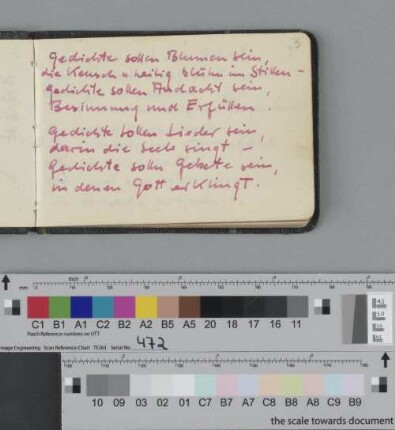 3
Gedichte sollen Blumen sein,
die keusch u heilig blühn im Stillen –
Gedichte sollen Andacht sein,
Besinnung und Erfüllen.
Gedichte sollen Lieder sein,
darin die Seele singt –
Gedichte solln Gebete sein,
in denen Gott erklingt.
inch
mm
C1 B1 A1 C2 B2 A2 B5 A5 20 18 17 16 11
Patch Reference numbers on UTT
Image Engineering Scan Reference Chart TE263 Serial No. 472
10 09 03 02 01 C7 B7 A7 C8 B8 A8 C9 B9
the scale towards document